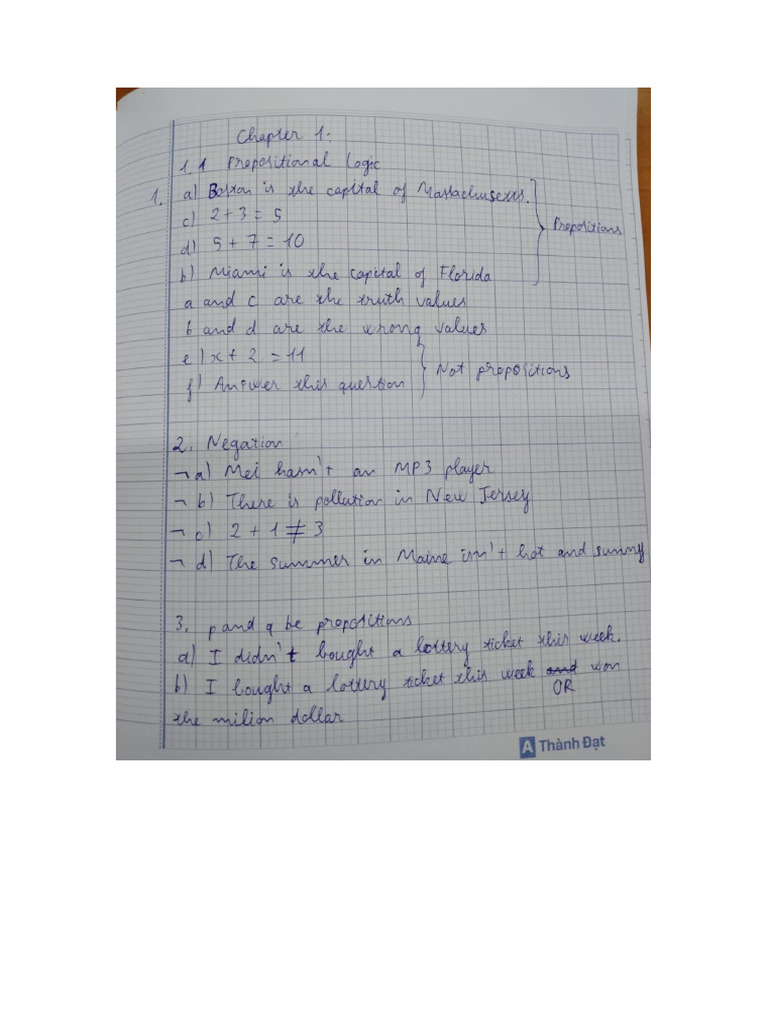 Chapter 1.
1.1 Propositional Logic
1. a) Boston is the capital of Massachusetts.
c) 2 + 3 = 5
Propositions
d) 5 + 7 = 10
b) Miami is the capital of Florida
a and c are the truth values
b and d are the wrong values
e) x + 2 = 11
Not propositions
f) Answer this question
2. Negation
¬ a) Mei hasn't an MP3 player
¬ b) There is pollution in New Jersey
¬ c) 2 + 1 ≠ 3
¬ d) The summer in Maine isn't hot and sunny
3. p and q be propositions
a) I didn't bought a lottery ticket this week.
b) I bought a lottery ticket this week and won
OR
the milion dollar
A Thành Đạt